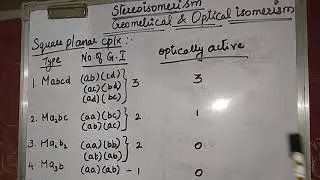 Stereoisomerism
Geometrical & Optical isomerism
Square planar cplx :-
Type No. of G.I optically active
1. Mabcd (ab)(cd) 3 3
(ac)(bd)
(ad)(bc)
2. Ma₂bc (aa)(bc) 2 1
(ab)(ac)
3. Ma₂b₂ (aa)(bb) 2 0
(ab)(ab)
4. Ma₃b (aa)(ab) - 1 0